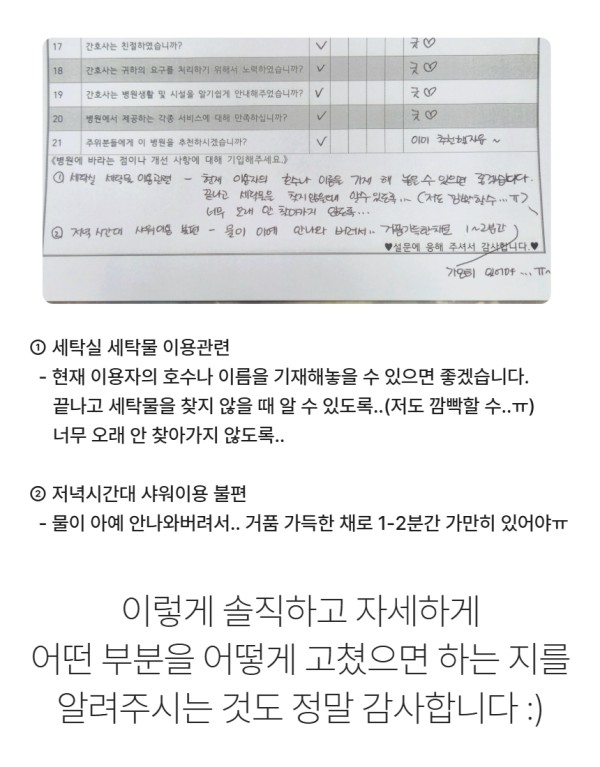 17 간호사는 친절하였습니까? ✓ 굿♡
18 간호사는 귀하의 요구를 처리하기 위해서 노력하였습니까? ✓ 굿♡
19 간호사는 병원생활 및 시설을 알기쉽게 안내해주었습니까? ✓ 굿♡
20 병원에서 제공하는 각종 서비스에 대해 만족하십니까? ✓ 굿♡
21 주위분들에게 이 병원을 추천하시겠습니까? ✓ 이미 추천했지용~
《병원에 바라는 점이나 개선 사항에 대해 기입해주세요.》
① 세탁실 세탁물 이용관련 - 현재 이용자의 호수나 이름을 기재 해 놓을 수 있으면 좋겠습니다.
끝나고 세탁물을 찾지 않을때 알수있도록... (저도 깜빡할수...ㅠ)
너무 오래 안 찾아가지 않도록...
② 저녁시간대 샤워이용 불편 - 물이 아예 안나와 버려서.. 거품가득한채로 1~2분간
♥설문에 응해 주셔서 감사합니다.♥
가만히 있어야...ㅠ~
① 세탁실 세탁물 이용관련
- 현재 이용자의 호수나 이름을 기재해놓을 수 있으면 좋겠습니다.
끝나고 세탁물을 찾지 않을 때 알 수 있도록..(저도 깜빡할 수..ㅠ)
너무 오래 안 찾아가지 않도록..
② 저녁시간대 샤워이용 불편
- 물이 아예 안나와버려서.. 거품 가득한 채로 1-2분간 가만히 있어야ㅠ
이렇게 솔직하고 자세하게
어떤 부분을 어떻게 고쳤으면 하는 지를
알려주시는 것도 정말 감사합니다 :)